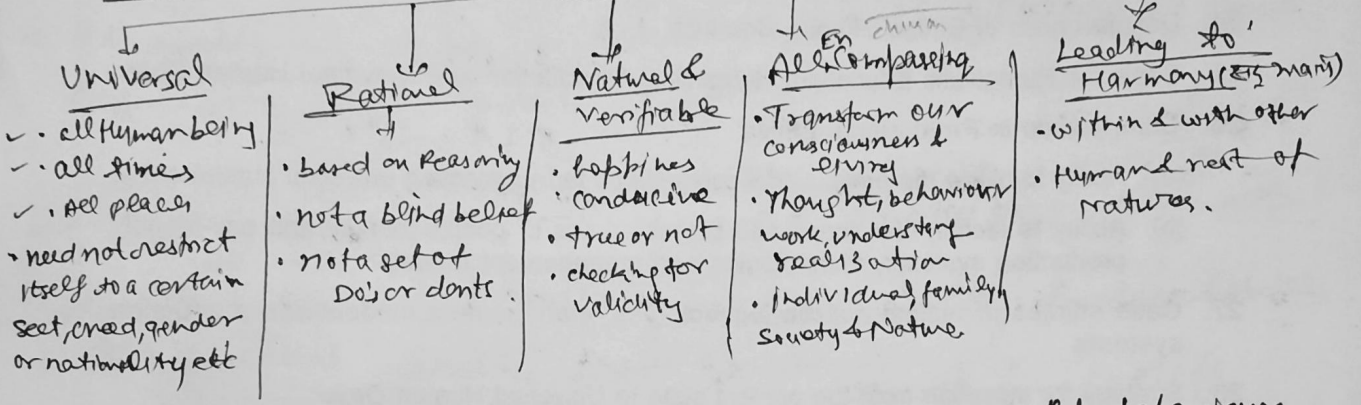 Universal
✓ · all Human being
✓ · all times
✓ · All places
· need not restrict
itself to a certain
sect, creed, gender
or nationality etc
Rational
· based on Reasoning
· not a blind belief
· not a set of
Do's or donts.
Natural &
Verifiable
· happines
conducive
· true or not
· checking for
validity
En
All Compassing
· Transform our
consciousness &
living
· Thought, behaviour
work, understang
realization
· individual, family,
society & Nature
Leading to
Harmony
· within & with other
· Human & rest of
Natures.